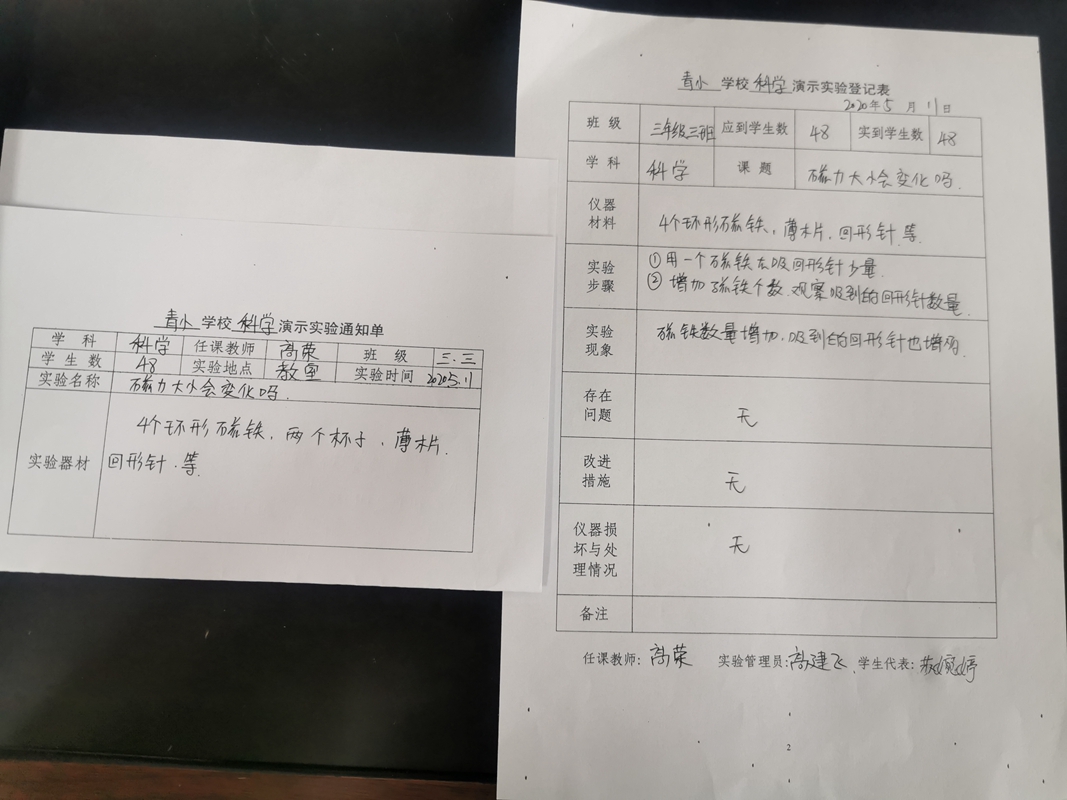 青小 学校 科学 演示实验通知单
学 科 科学 任课教师 高荣 班 级 三.三
学 生 数 48 实验地点 教室 实验时间 2020.5.11
实验名称 磁力大小会变化吗.
实验器材 4个环形磁铁, 两个杯子、薄木片.
回形针.等.
青小 学校 科学 演示实验登记表
2020年5月11日
班 级 三年级三班 应到学生数 48 实到学生数 48
学 科 科学 课 题 磁力大小会变化吗.
仪器
材料
4个环形磁铁, 薄木片, 回形针 等.
实验
步骤
①用一个磁铁去吸回形针少量.
②增加磁铁个数.观察吸到的回形针数量.
实验
现象
磁铁数量增加,吸到的回形针也增多.
存在
问题
无
改进
措施
无
仪器损
坏与处
理情况
无
备注
任课教师: 高荣 实验管理员: 高建飞. 学生代表:
2